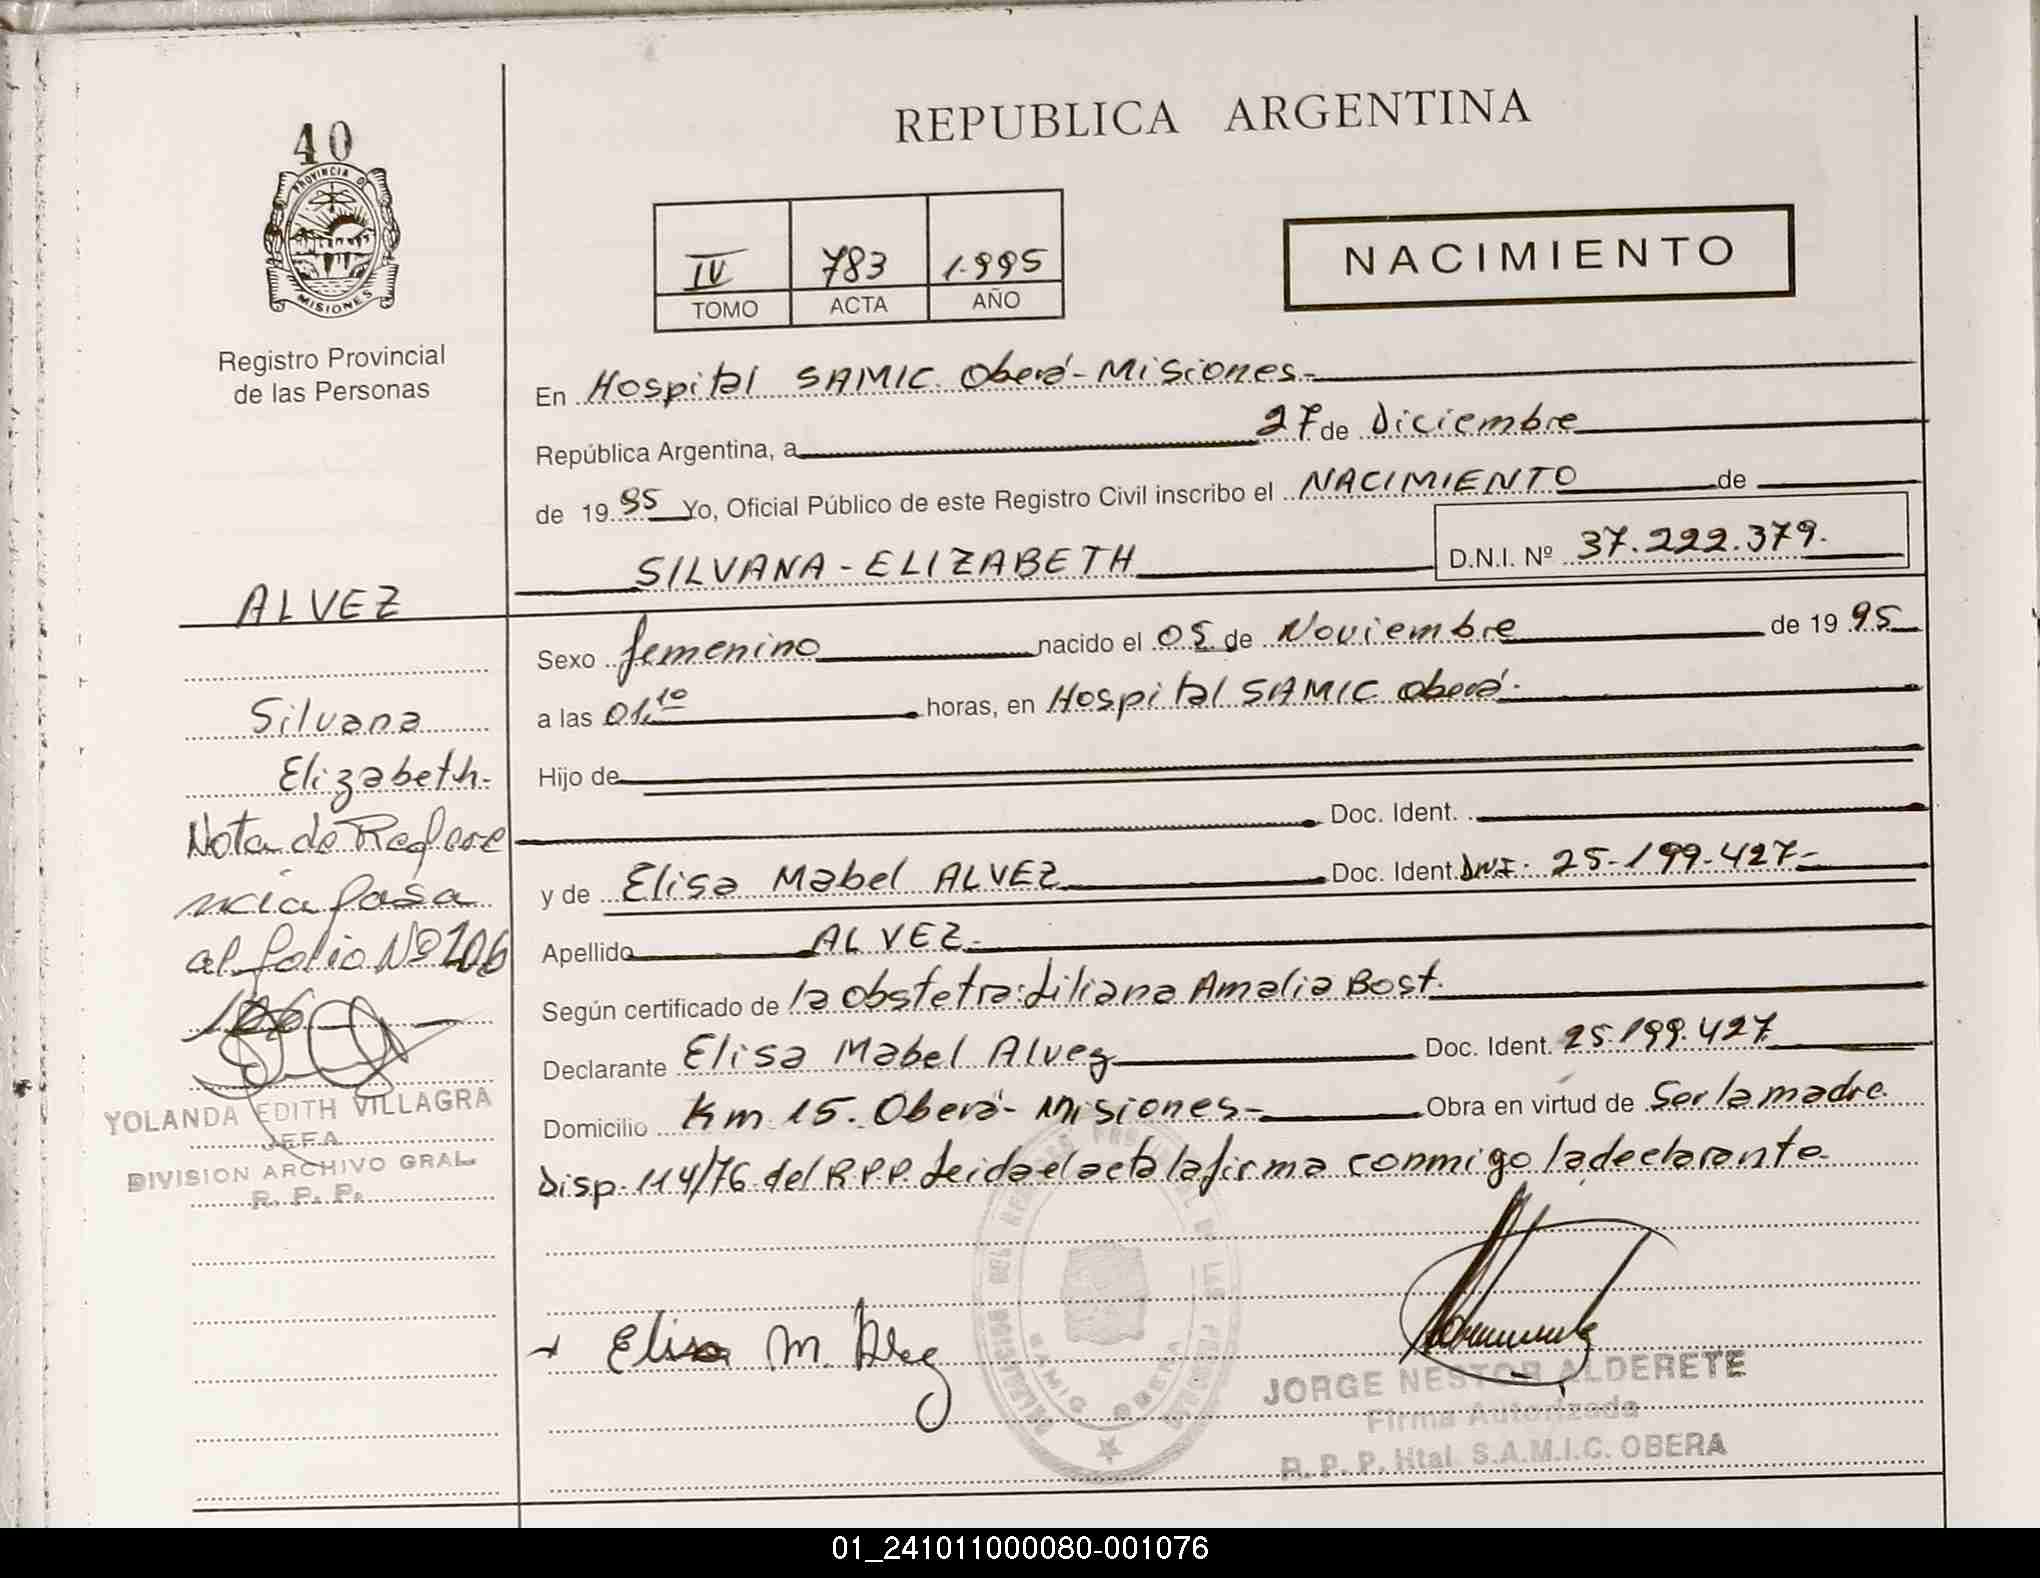 REPUBLICA ARGENTINA
40
PROVINCIA D
MISIONES
Registro Provincial
de las Personas
IV 783 1.995
TOMO ACTA AÑO
NACIMIENTO
En Hospital SAMIC. Oberá-Misiones-
República Argentina, a 27 de diciembre
de 1995 Yo, Oficial Público de este Registro Civil inscribo el NACIMIENTO de
SILVANA-ELIZABETH D.N.I. Nº 37.222.379.
Sexo femenino nacido el 05 de Noviembre de 1995
a las 01.10 horas, en Hospital SAMIC Oberá-
Hijo de
Doc. Ident.
y de Elisa Mabel ALVEZ Doc. Ident. DNI. 25-199-427-
Apellido ALVEZ-
Según certificado de la obstetra: Liliana Amalia Bost.
Declarante Elisa Mabel Alvez Doc. Ident. 25.199.427
Domicilio Km 15. Oberá-Misiones- Obra en virtud de Ser la madre
Disp. 114/76 del R.P.P. Leida el acta la firma conmigo la declarante-
Elisa M. Alvez
JORGE NESTOR ALDERETE
Firma Autorizada
R. P. P. Htal. S.A.M.I.C. OBERA
SAMIC OBERA
ALVEZ
Silvana
Elizabeth-
Nota de Refere
ncia pasa
al folio Nº 106
106
YOLANDA EDITH VILLAGRA
JEFA
DIVISION ARCHIVO GRAL.
R. P. P.
01_241011000080-001076